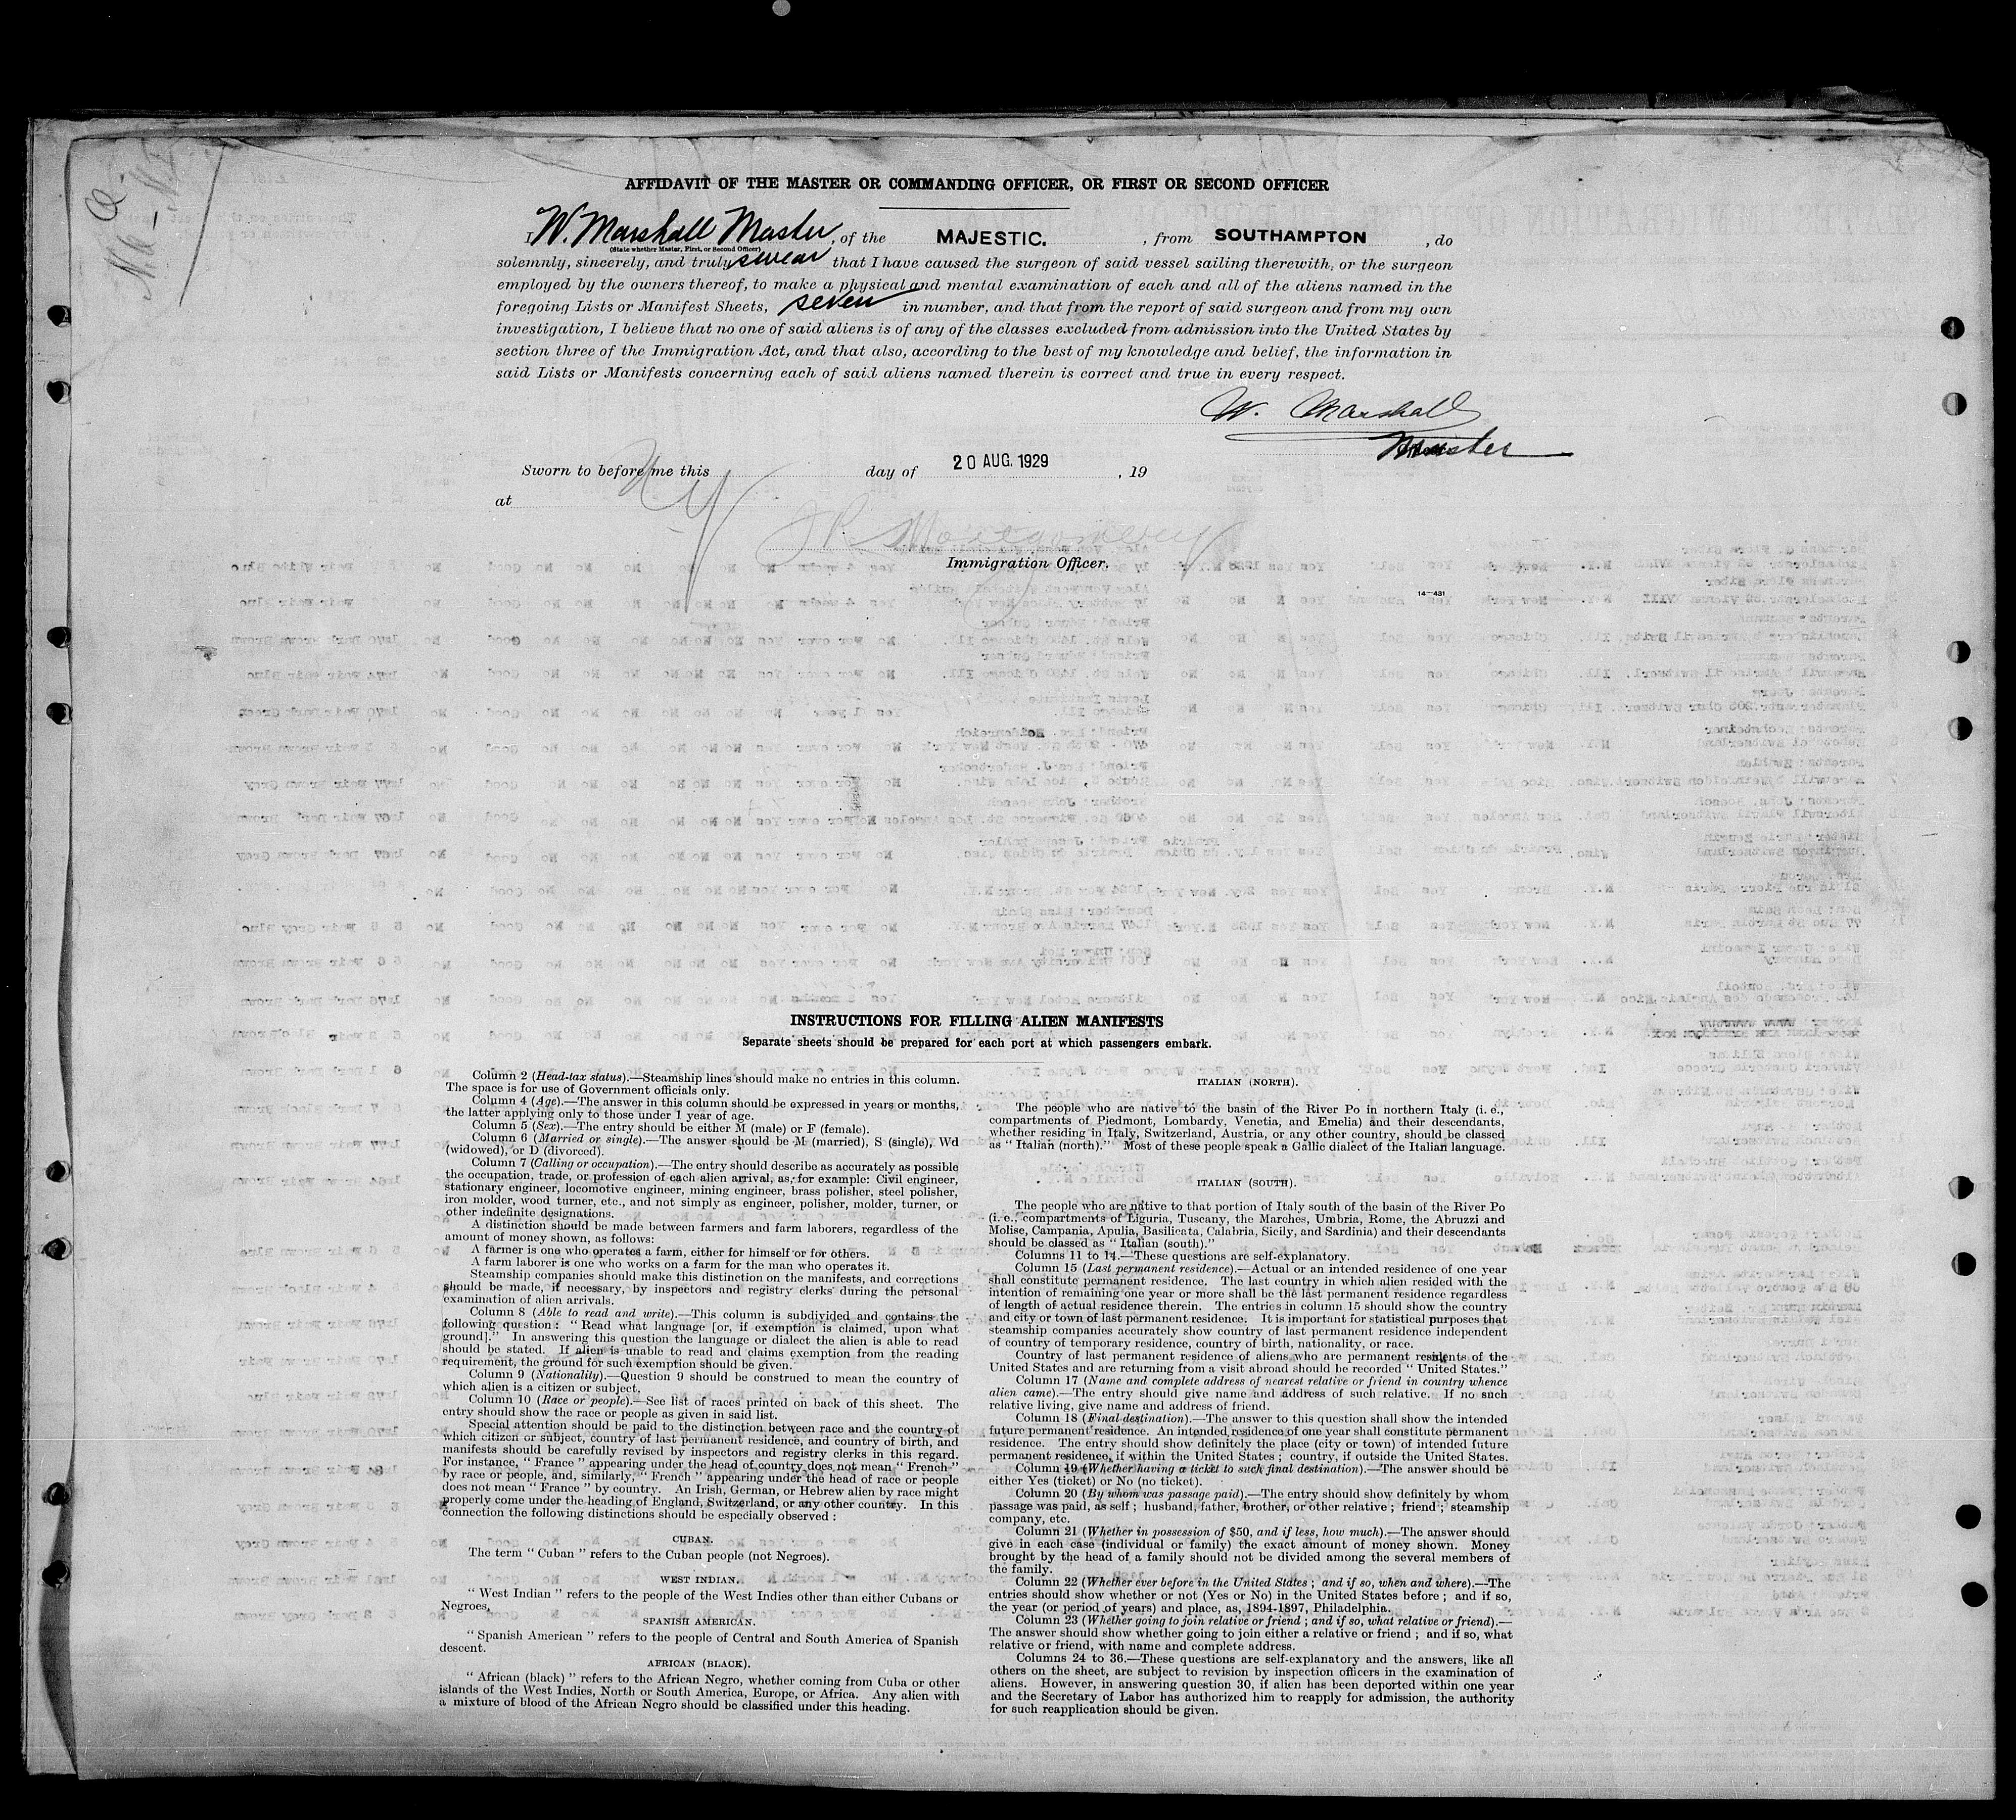 AFFIDAVIT OF THE MASTER OR COMMANDING OFFICER, OR FIRST OR SECOND OFFICER
I W. Marshall Master, of the MAJESTIC. , from SOUTHAMPTON , do
(State whether Master, First, or Second Officer)
solemnly, sincerely, and truly swear that I have caused the surgeon of said vessel sailing therewith, or the surgeon
employed by the owners thereof, to make a physical and mental examination of each and all of the aliens named in the
foregoing Lists or Manifest Sheets, seven in number, and that from the report of said surgeon and from my own
investigation, I believe that no one of said aliens is of any of the classes excluded from admission into the United States by
section three of the Immigration Act, and that also, according to the best of my knowledge and belief, the information in
said Lists or Manifests concerning each of said aliens named therein is correct and true in every respect.
W. Marshall
Master
Sworn to before me this day of 20 AUG. 1929 , 19
at NY
J R Montgomery
Immigration Officer.
14—431
INSTRUCTIONS FOR FILLING ALIEN MANIFESTS
Separate sheets should be prepared for each port at which passengers embark.
Column 2 (Head-tax status).—Steamship lines should make no entries in this column.
The space is for use of Government officials only.
Column 4 (Age).—The answer in this column should be expressed in years or months,
the latter applying only to those under 1 year of age.
Column 5 (Sex).—The entry should be either M (male) or F (female).
Column 6 (Married or single).—The answer should be M (married), S (single), Wd
(widowed), or D (divorced).
Column 7 (Calling or occupation).—The entry should describe as accurately as possible
the occupation, trade, or profession of each alien arrival, as, for example: Civil engineer,
stationary engineer, locomotive engineer, mining engineer, brass polisher, steel polisher,
iron molder, wood turner, etc., and not simply as engineer, polisher, molder, turner, or
other indefinite designations.
A distinction should be made between farmers and farm laborers, regardless of the
amount of money shown, as follows:
A farmer is one who operates a farm, either for himself or for others.
A farm laborer is one who works on a farm for the man who operates it.
Steamship companies should make this distinction on the manifests, and corrections
should be made, if necessary, by inspectors and registry clerks during the personal
examination of alien arrivals.
Column 8 (Able to read and write).—This column is subdivided and contains the
following question: " Read what language [or, if exemption is claimed, upon what
ground]." In answering this question the language or dialect the alien is able to read
should be stated. If alien is unable to read and claims exemption from the reading
requirement, the ground for such exemption should be given.
Column 9 (Nationality).—Question 9 should be construed to mean the country of
which alien is a citizen or subject.
Column 10 (Race or people).—See list of races printed on back of this sheet. The
entry should show the race or people as given in said list.
Special attention should be paid to the distinction between race and the country of
which citizen or subject, country of last permanent residence, and country of birth, and
manifests should be carefully revised by inspectors and registry clerks in this regard.
For instance, " France " appearing under the head of country does not mean " French "
by race or people, and, similarly, " French " appearing under the head of race or people
does not mean " France " by country. An Irish, German, or Hebrew alien by race might
properly come under the heading of England, Switzerland, or any other country. In this
connection the following distinctions should be especially observed :
CUBAN.
The term " Cuban " refers to the Cuban people (not Negroes).
WEST INDIAN.
" West Indian " refers to the people of the West Indies other than either Cubans or
Negroes.
SPANISH AMERICAN.
" Spanish American " refers to the people of Central and South America of Spanish
descent.
AFRICAN (BLACK).
" African (black) " refers to the African Negro, whether coming from Cuba or other
islands of the West Indies, North or South America, Europe, or Africa. Any alien with
a mixture of blood of the African Negro should be classified under this heading.
ITALIAN (NORTH).
The people who are native to the basin of the River Po in northern Italy (i. e.,
compartments of Piedmont, Lombardy, Venetia, and Emelia) and their descendants,
whether residing in Italy, Switzerland, Austria, or any other country, should be classed
as " Italian (north)." Most of these people speak a Gallic dialect of the Italian language.
ITALIAN (SOUTH).
The people who are native to that portion of Italy south of the basin of the River Po
(i. e., compartments of Liguria, Tuscany, the Marches, Umbria, Rome, the Abruzzi and
Molise, Campania, Apulia, Basilicata, Calabria, Sicily, and Sardinia) and their descendants
should be classed as " Italian (south)."
Columns 11 to 14.—These questions are self-explanatory.
Column 15 (Last permanent residence).—Actual or an intended residence of one year
shall constitute permanent residence. The last country in which alien resided with the
intention of remaining one year or more shall be the last permanent residence regardless
of length of actual residence therein. The entries in column 15 should show the country
and city or town of last permanent residence. It is important for statistical purposes that
steamship companies accurately show country of last permanent residence independent
of country of temporary residence, country of birth, nationality, or race.
Country of last permanent residence of aliens who are permanent residents of the
United States and are returning from a visit abroad should be recorded " United States."
Column 17 (Name and complete address of nearest relative or friend in country whence
alien came).—The entry should give name and address of such relative. If no such
relative living, give name and address of friend.
Column 18 (Final destination).—The answer to this question shall show the intended
future permanent residence. An intended residence of one year shall constitute permanent
residence. The entry should show definitely the place (city or town) of intended future
permanent residence, if within the United States ; country, if outside the United States.
Column 19 (Whether having a ticket to such final destination).—The answer should be
either Yes (ticket) or No (no ticket).
Column 20 (By whom was passage paid).—The entry should show definitely by whom
passage was paid, as self ; husband, father, brother, or other relative ; friend ; steamship
company, etc.
Column 21 (Whether in possession of $50, and if less, how much).—The answer should
give in each case (individual or family) the exact amount of money shown. Money
brought by the head of a family should not be divided among the several members of
the family.
Column 22 (Whether ever before in the United States ; and if so, when and where).—The
entries should show whether or not (Yes or No) in the United States before ; and if so,
the year (or period of years) and place, as, 1894-1897, Philadelphia.
Column 23 (Whether going to join relative or friend ; and if so, what relative or friend).—
The answer should show whether going to join either a relative or friend ; and if so, what
relative or friend, with name and complete address.
Columns 24 to 36.—These questions are self-explanatory and the answers, like all
others on the sheet, are subject to revision by inspection officers in the examination of
aliens. However, in answering question 30, if alien has been deported within one year
and the Secretary of Labor has authorized him to reapply for admission, the authority
for such reapplication should be given.